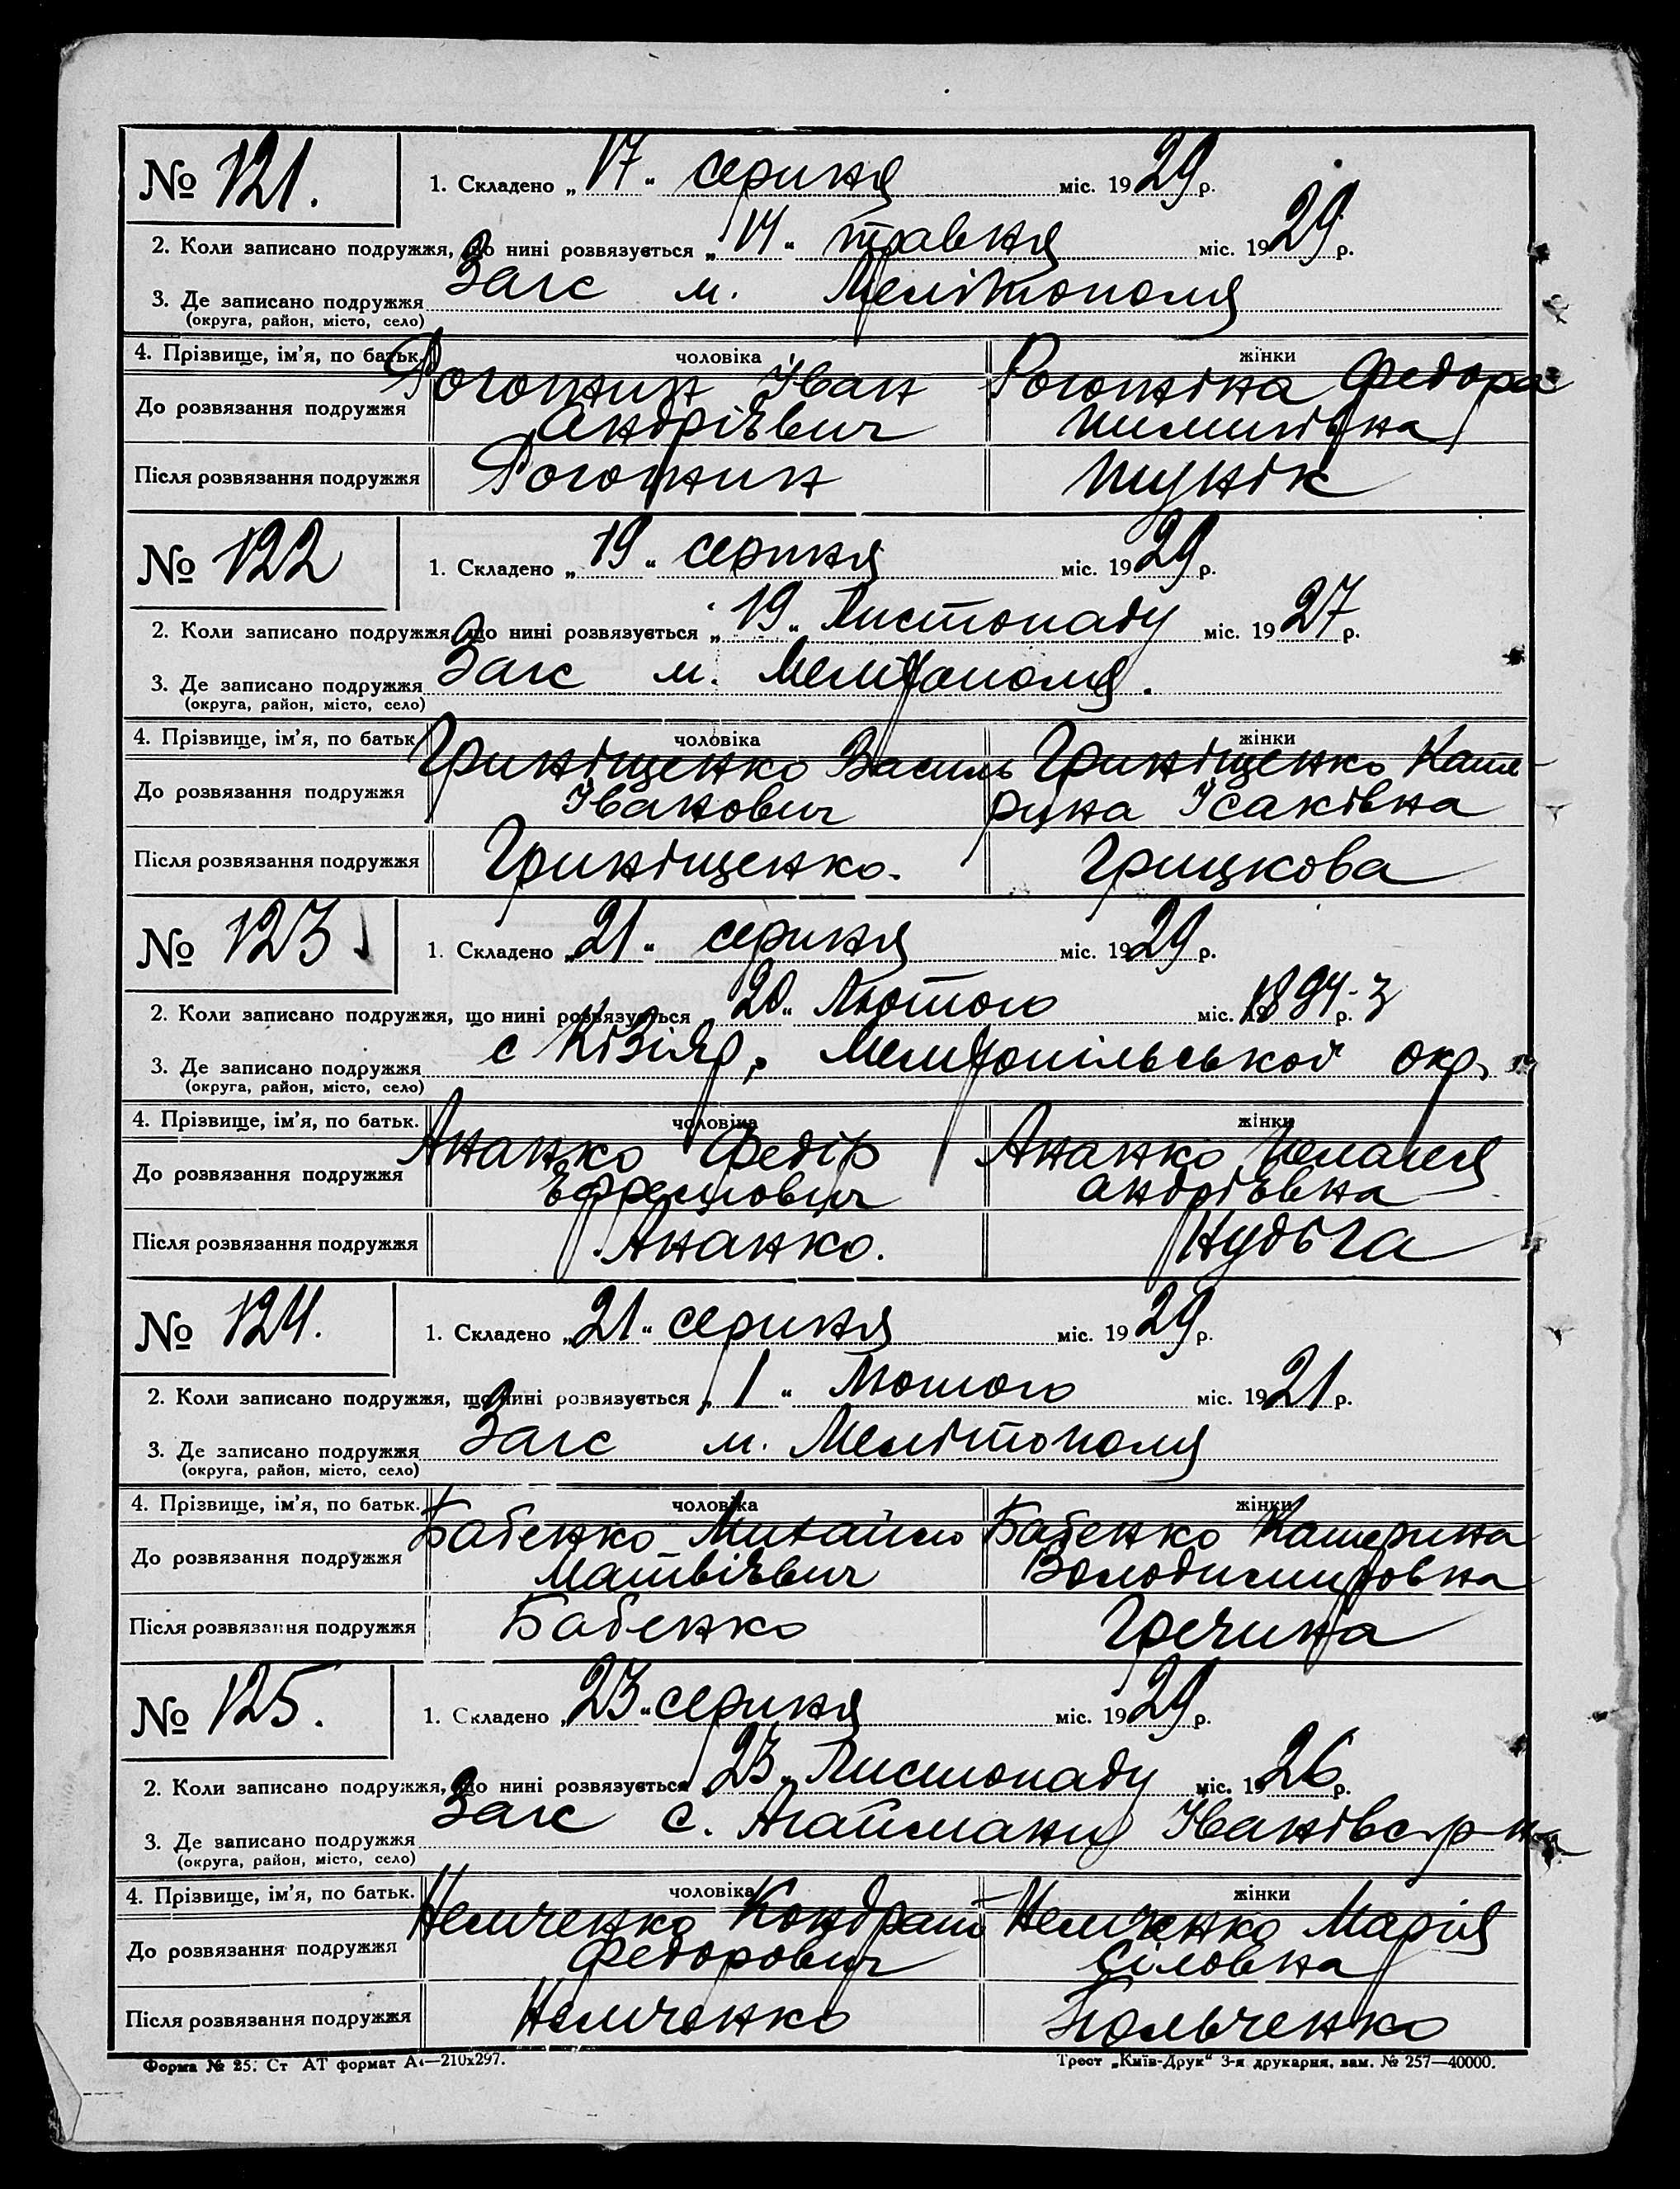 № 121. 1. Складено „17“ серпня міс. 1929 р.
2. Коли записано подружжя, що нині розвязується „14“ травня міс. 1929 р.
3. Де записано подружжя Загс м. Мелітополя
(округа, район, місто, село)
4. Прізвище, ім’я, по батьк. чоловіка жінки
До розвязання подружжя Рогожин Іван Рогожіна Федора
Андрієвич
Після розвязання подружжя Рогожин
№ 122 1. Складено „19“ серпня міс. 1929 р.
2. Коли записано подружжя, що нині розвязується „19“ Листопаду міс. 1927 р.
3. Де записано подружжя Загс м. Мелітополя.
(округа, район, місто, село)
4. Прізвище, ім’я, по батьк. чоловіка жінки
До розвязання подружжя Гриніщенко Василь Гриніщенко Кате-
Іванович рина Ісаківна
Після розвязання подружжя Гриніщенко. Грицкова
№ 123 1. Складено „21“ серпня міс. 1929 р.
2. Коли записано подружжя, що нині розвязується „20“ Лютого міс. 1894 р.
3. Де записано подружжя с Кізіяр, Мелітопільської окр.
(округа, район, місто, село)
4. Прізвище, ім’я, по батьк. чоловіка жінки
До розвязання подружжя Ананко Федір Ананко Пелагея
Єфремович Андрієвна
Після розвязання подружжя Ананко. Нудьга
№ 124. 1. Складено „21“ серпня міс. 1929 р.
2. Коли записано подружжя, що нині розвязується „1“ Лютого міс. 1921 р.
3. Де записано подружжя Загс м. Мелітополя
(округа, район, місто, село)
4. Прізвище, ім’я, по батьк. чоловіка жінки
До розвязання подружжя Бабенко Михайло Бабенко Катерина
Матвієвич Володимировна
Після розвязання подружжя Бабенко Гречина
№ 125. 1. Складено „23“ серпня міс. 1929 р.
2. Коли записано подружжя, що нині розвязується „23“ Листопаду міс. 1926 р.
3. Де записано подружжя Загс с. Агайманы Іванівс. р-н
(округа, район, місто, село)
4. Прізвище, ім’я, по батьк. чоловіка жінки
До розвязання подружжя Немченко Кондрат Немченко Марія
Федорович Сіловна
Після розвязання подружжя Немченко
Форма № 25. Ст АТ формат А4—210х297. Трест „Київ-Друк“ 3-я друкарня, зам. № 257—40000.